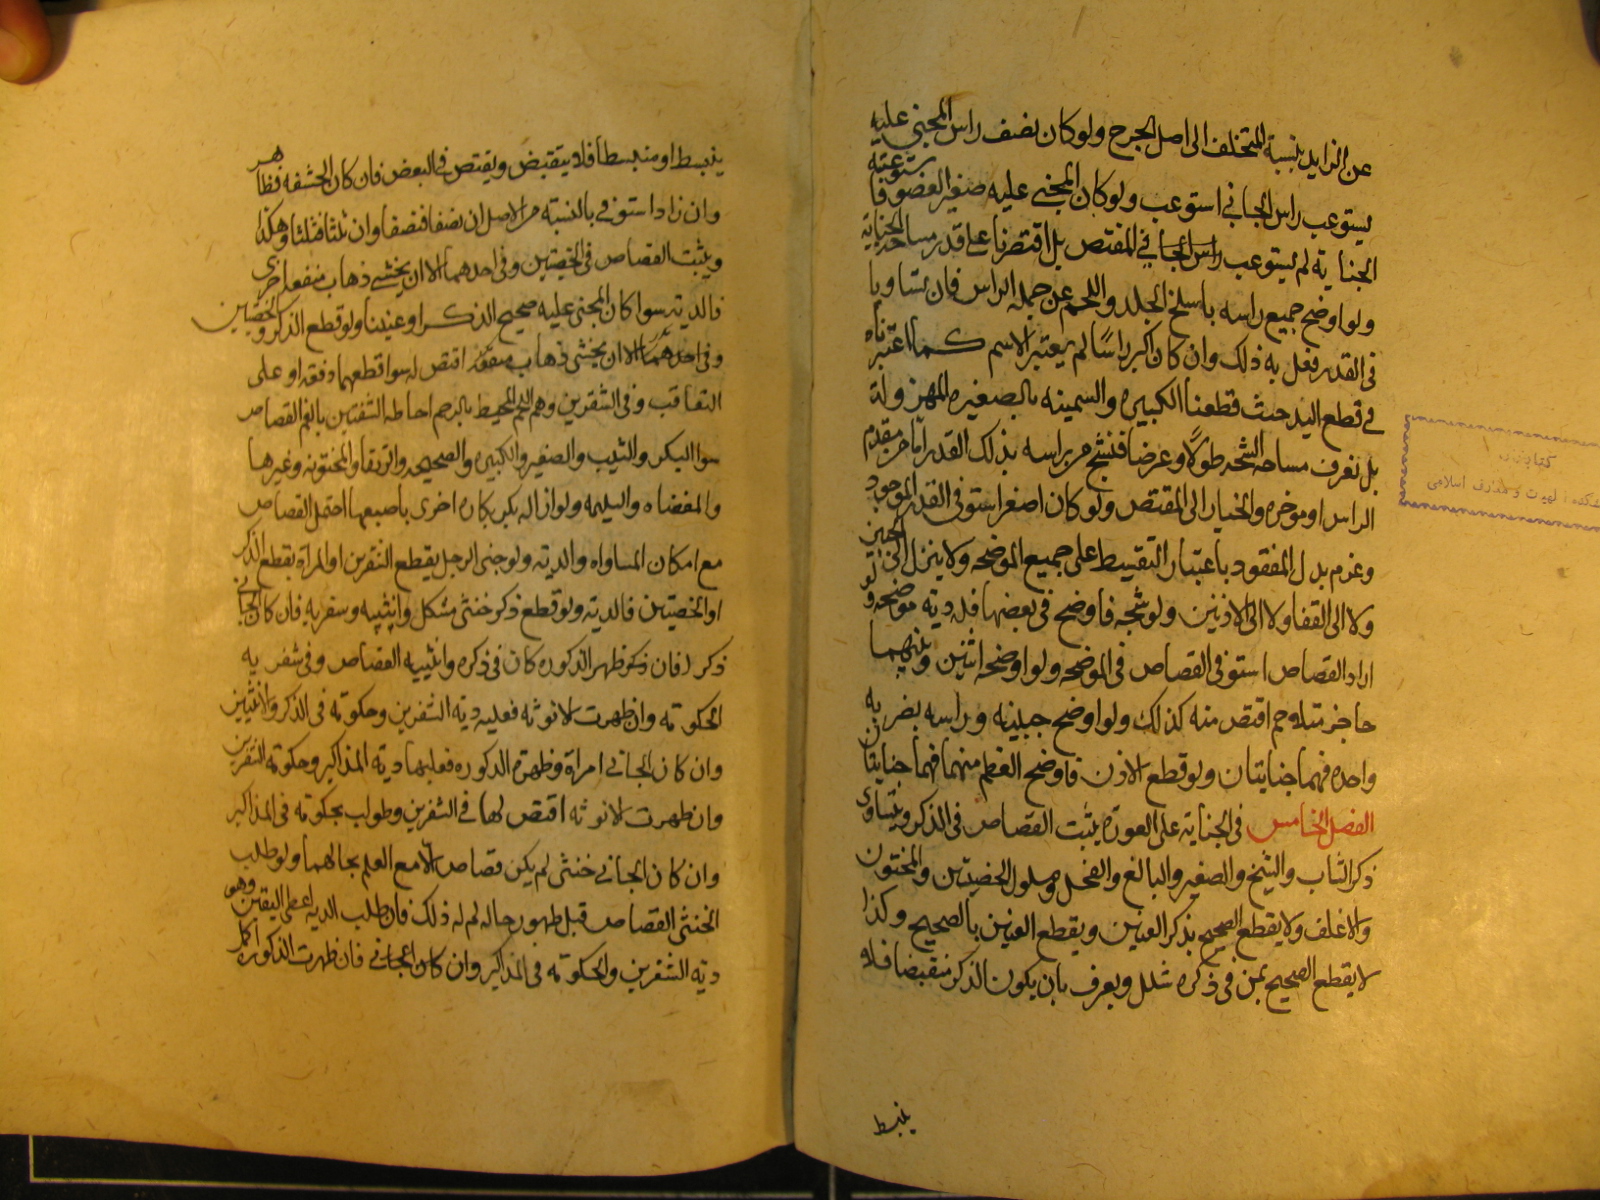 عن الزايد بنسبة المتخلف الى اصل الجرح ولو كان نصف راس المجنى عليه
يستوعب راس الجاني استوعب ولو كان المجنى عليه صغير العضو فاستوعبته
الجناية لم يستوعب راس الجاني في المقتص بل اقتصرنا على قدر مساحة الجناية
ولو اوضح جميع راسه باسلخ الجلد واللحم عن جملة الراس فان تساويا
في القدر فعل به ذلك وان كان اكبر راسا لم يعتبر الاسم كما اعتبرناه
في قطع اليد حيث قطعنا الكبيره والسمينه بالصغيره المهزوله
بل نعرف مساحه الشجه طولا وعرضا فنشج من راسه بذلك القدر اما من مقدم
الراس او موخره والخيار الى المقتص ولو كان اصغر استوفى القدر الموجود
وغرم بدل المفقود باعتبار التقسيط على جميع الموضحه ولا ينزل الى الجبين
ولا الى القفا ولا الى الاذنين ولو شجه فاوضح في بعضها فله دية موضحه ولو
اراد القصاص استوفى القصاص في الموضحه ولو اوضحه اثنتين وبينهما
حاجز متلاحم اقتص منه كذلك ولو اوضح جبينه وراسه بضربه
واحده فهما جنايتان ولو قطع الاذن فاوضح العظم منهما فهما جنايتان
الفصل الخامس في الجناية على العوره يثبت القصاص في الذكر ويتساوى
ذكر الشاب والشيخ والصغير والبالغ والفحل ومسلول الخصيتين والمختون
والاغلف ولا يقطع الصحيح بذكر العنين ويقطع العنين بالصحيح وكذا
لا يقطع الصحيح بمن في ذكره شلل ويعرف بان يكون الذكر منقبضا فلا
ينبسط
ينبسط او منبسطا فلا ينقبض ويقتص في البعض فان كان الحشفه فظاهر
وان زاد استوفي بالنسبته من الاصل ان نصفا فنصفا وان ثلثا فثلثا وهكذا
ويثبت القصاص في الخصيتين وفي احدهما الا ان يخشى ذهاب منفعة اخرى
فالدية سوا كان المجنى عليه صحيح الذكر او عنينا ولو قطع الذكر والخصيتين
وفي احدهما الا ان يخشى ذهاب منفعه اقتص له سوا قطعهما دفعه او على
التعاقب وفي الشفرين وهم اللحم المحيط بالرحم احاطه الشفتين بالفم القصاص
سوا البكر والثيب والصغير والكبيره والصحيحه والرتقا والمختونه وغيرها
والمفضاه والسليمه ولو ازاله بكر بكارة اخرى باصبعها احتمل القصاص
مع امكان المساواه والدية ولو جنى الرجل بقطع الشفرين او المراة بقطع الذكر
او الخصيتين فالدية ولو قطع ذكر خنثى مشكل وانثييه وشفريه فان كان الجاني
ذكرا فان ظهر الذكوره كان في ذكره وانثييه القصاص وفي شفريه
الحكومة وان ظهرت الانوثه فعليه دية الشفرين وحكومة في الذكر والانثيين
وان كان الجاني امراة وظهرة الذكوره فعليها دية المذاكير وحكومة الشفرين
وان ظهرت الانوثه اقتص لها في الشفرين وطولب بحكومة في المذاكير
وان كان الجاني خنثى لم يكن قصاص الا مع العلم بحالهما ولو طلب
الخنثى القصاص قبل ظهور حاله لم له ذلك فان طلب الدية اعطى اليقين وهو
دية الشفرين والحكومة في المذاكير وان كان الجاني فان ظهرت الذكوره اكمل